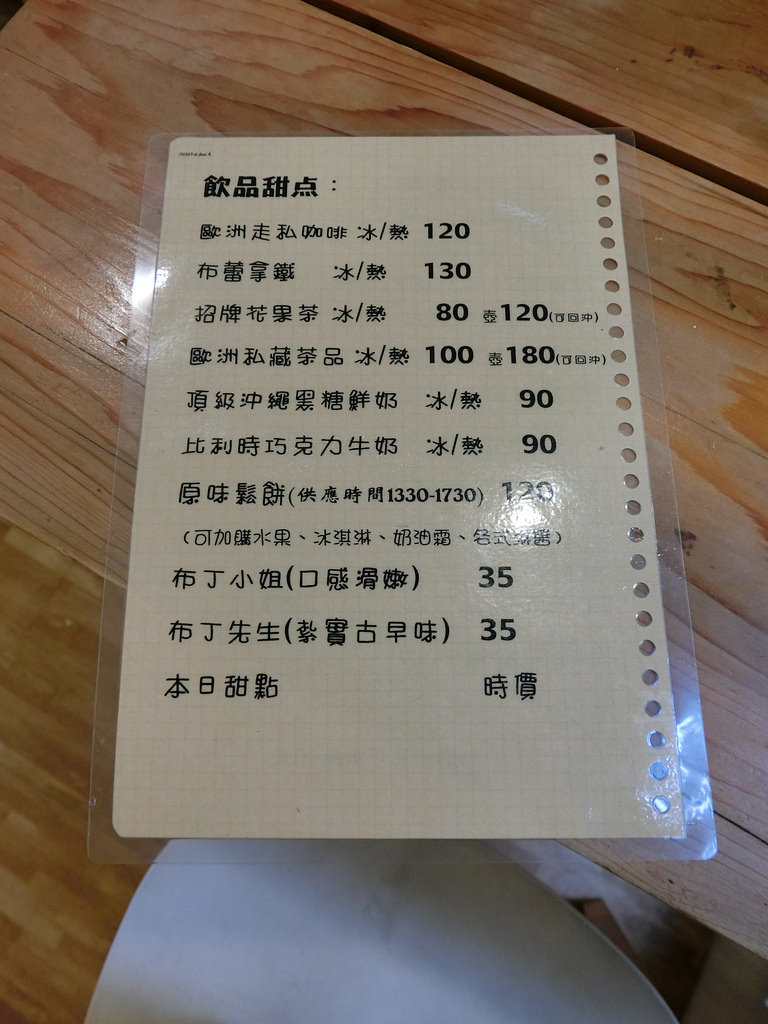 飲品甜点：
歐洲走私咖啡 冰/熱 120
布蕾拿鐵 冰/熱 130
招牌花果茶 冰/熱 80 壺120(可回沖)
歐洲私藏茶品 冰/熱 100 壺180(可回沖)
頂級沖繩黑糖鮮奶 冰/熱 90
比利時巧克力牛奶 冰/熱 90
原味鬆餅(供應時間1330-1730) 120
(可加購水果、冰淇淋、奶油霜、各式抹醬)
布丁小姐(口感滑嫩) 35
布丁先生(紮實古早味) 35
本日甜點 時價